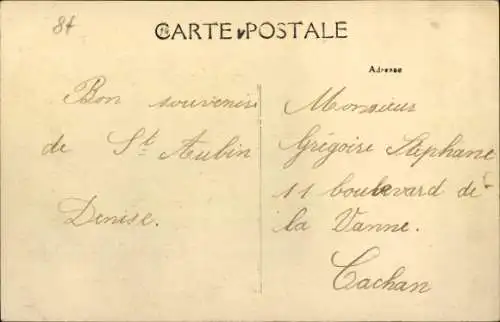 84
CARTE POSTALE
Adresse
Bon souvenir
de St Aubin
Denise.
Monsieur
Grégoire Stéphane
11 boulevard de
la Vanne.
Cachan